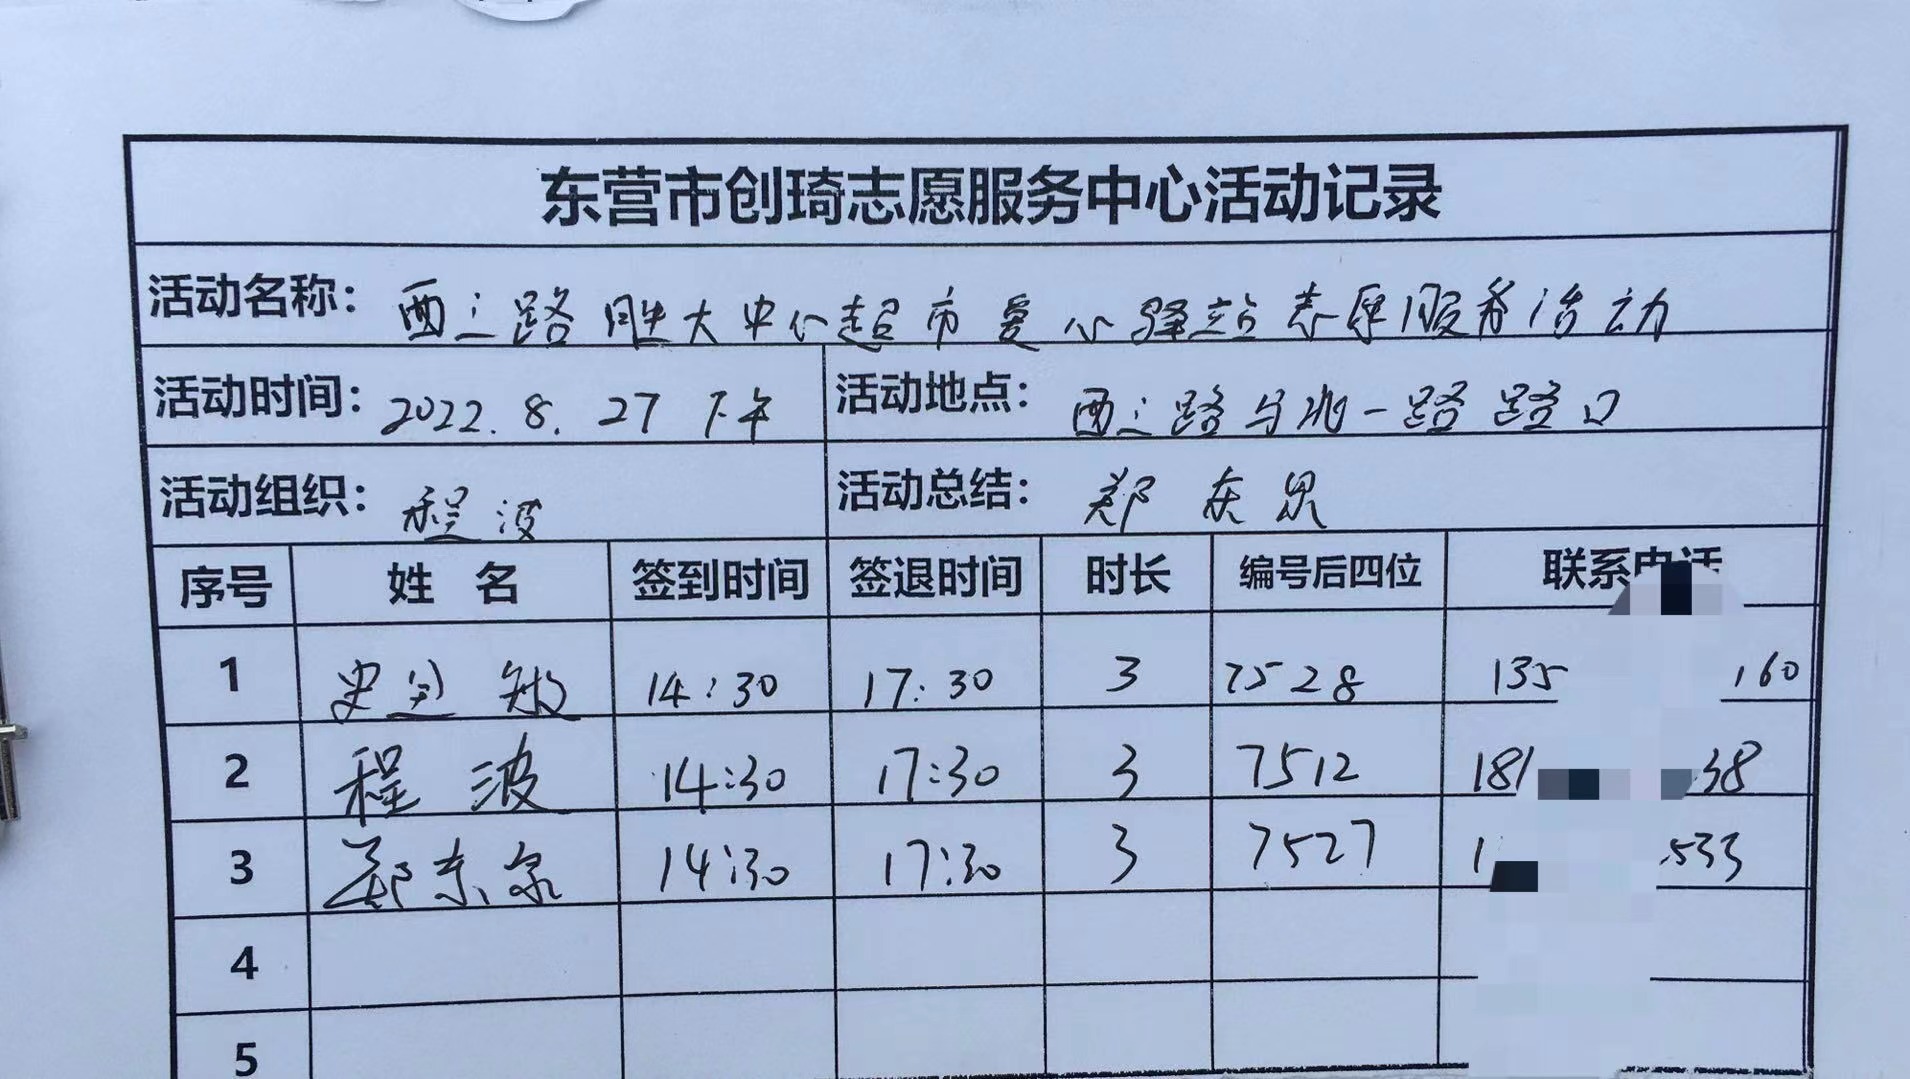 东营市创琦志愿服务中心活动记录
活动名称: 西三路胜大中心超市爱心驿站志愿服务活动
活动时间: 2022.8.27 下午 活动地点: 西三路与北一路路口
活动组织: 程波 活动总结: 郑东泉
序号 姓名 签到时间 签退时间 时长 编号后四位 联系电话
1 史 敏 14:30 17:30 3 7528 135 160
2 程波 14:30 17:30 3 7512 181 38
3 郑东泉 14:30 17:30 3 7527 1 533
4
5